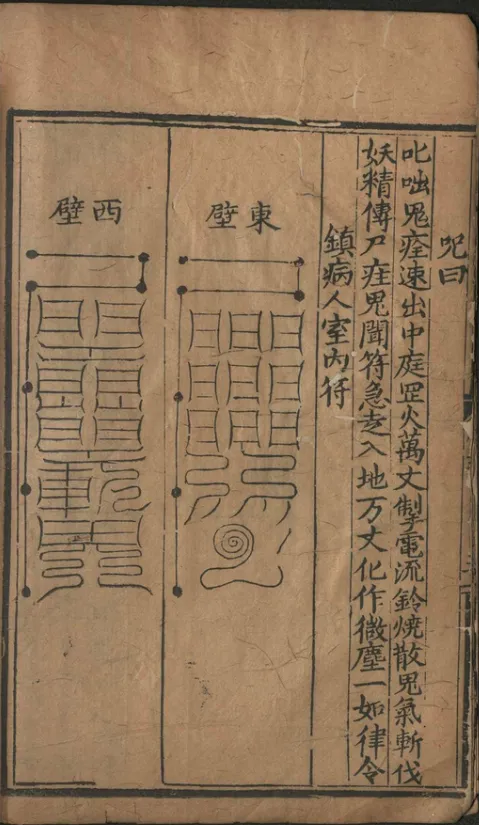 咒曰
叱咄鬼疰速出中庭罡火萬丈掣電流鈴燒散鬼氣斬伐
妖精傳尸疰鬼聞符急走入地万丈化作微塵一如律令
鎮病人室內符
東壁
西壁